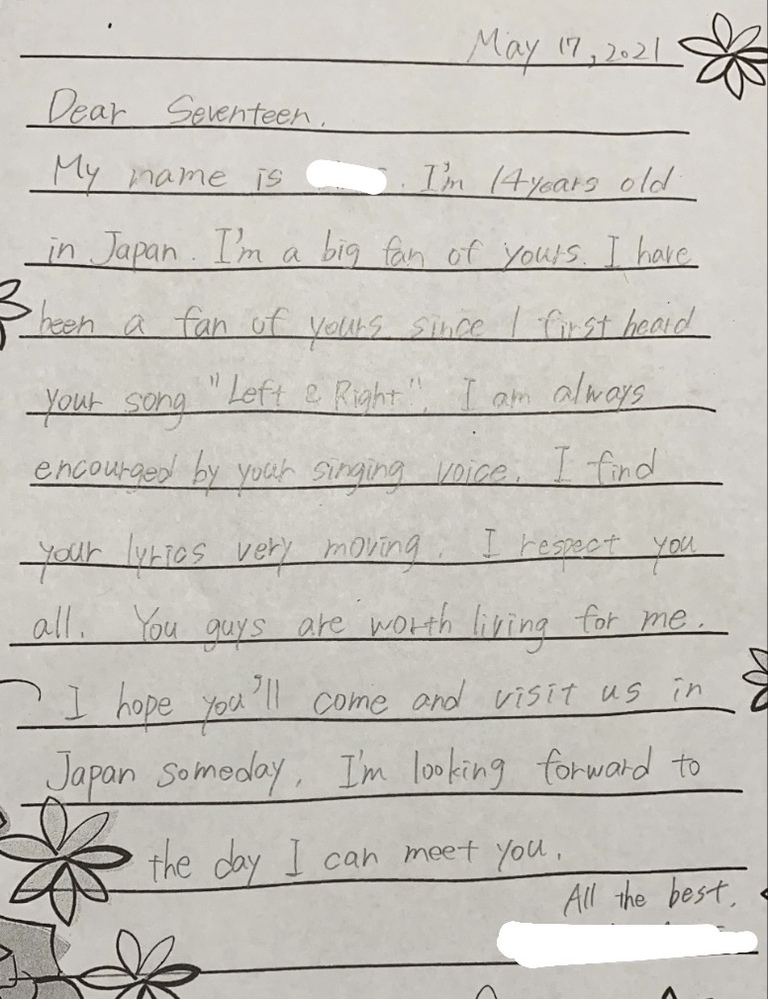 May 17, 2021
Dear Seventeen.
My name is . I'm 14years old
in Japan. I'm a big fan of yours. I have
been a fan of yours since I first heard
your song "Left & Right". I am always
encourged by your singing voice. I find
your lyrics very moving. I respect you
all. You guys are worth living for me.
I hope you'll come and visit us in
Japan someday. I'm looking forward to
the day I can meet you.
All the best.